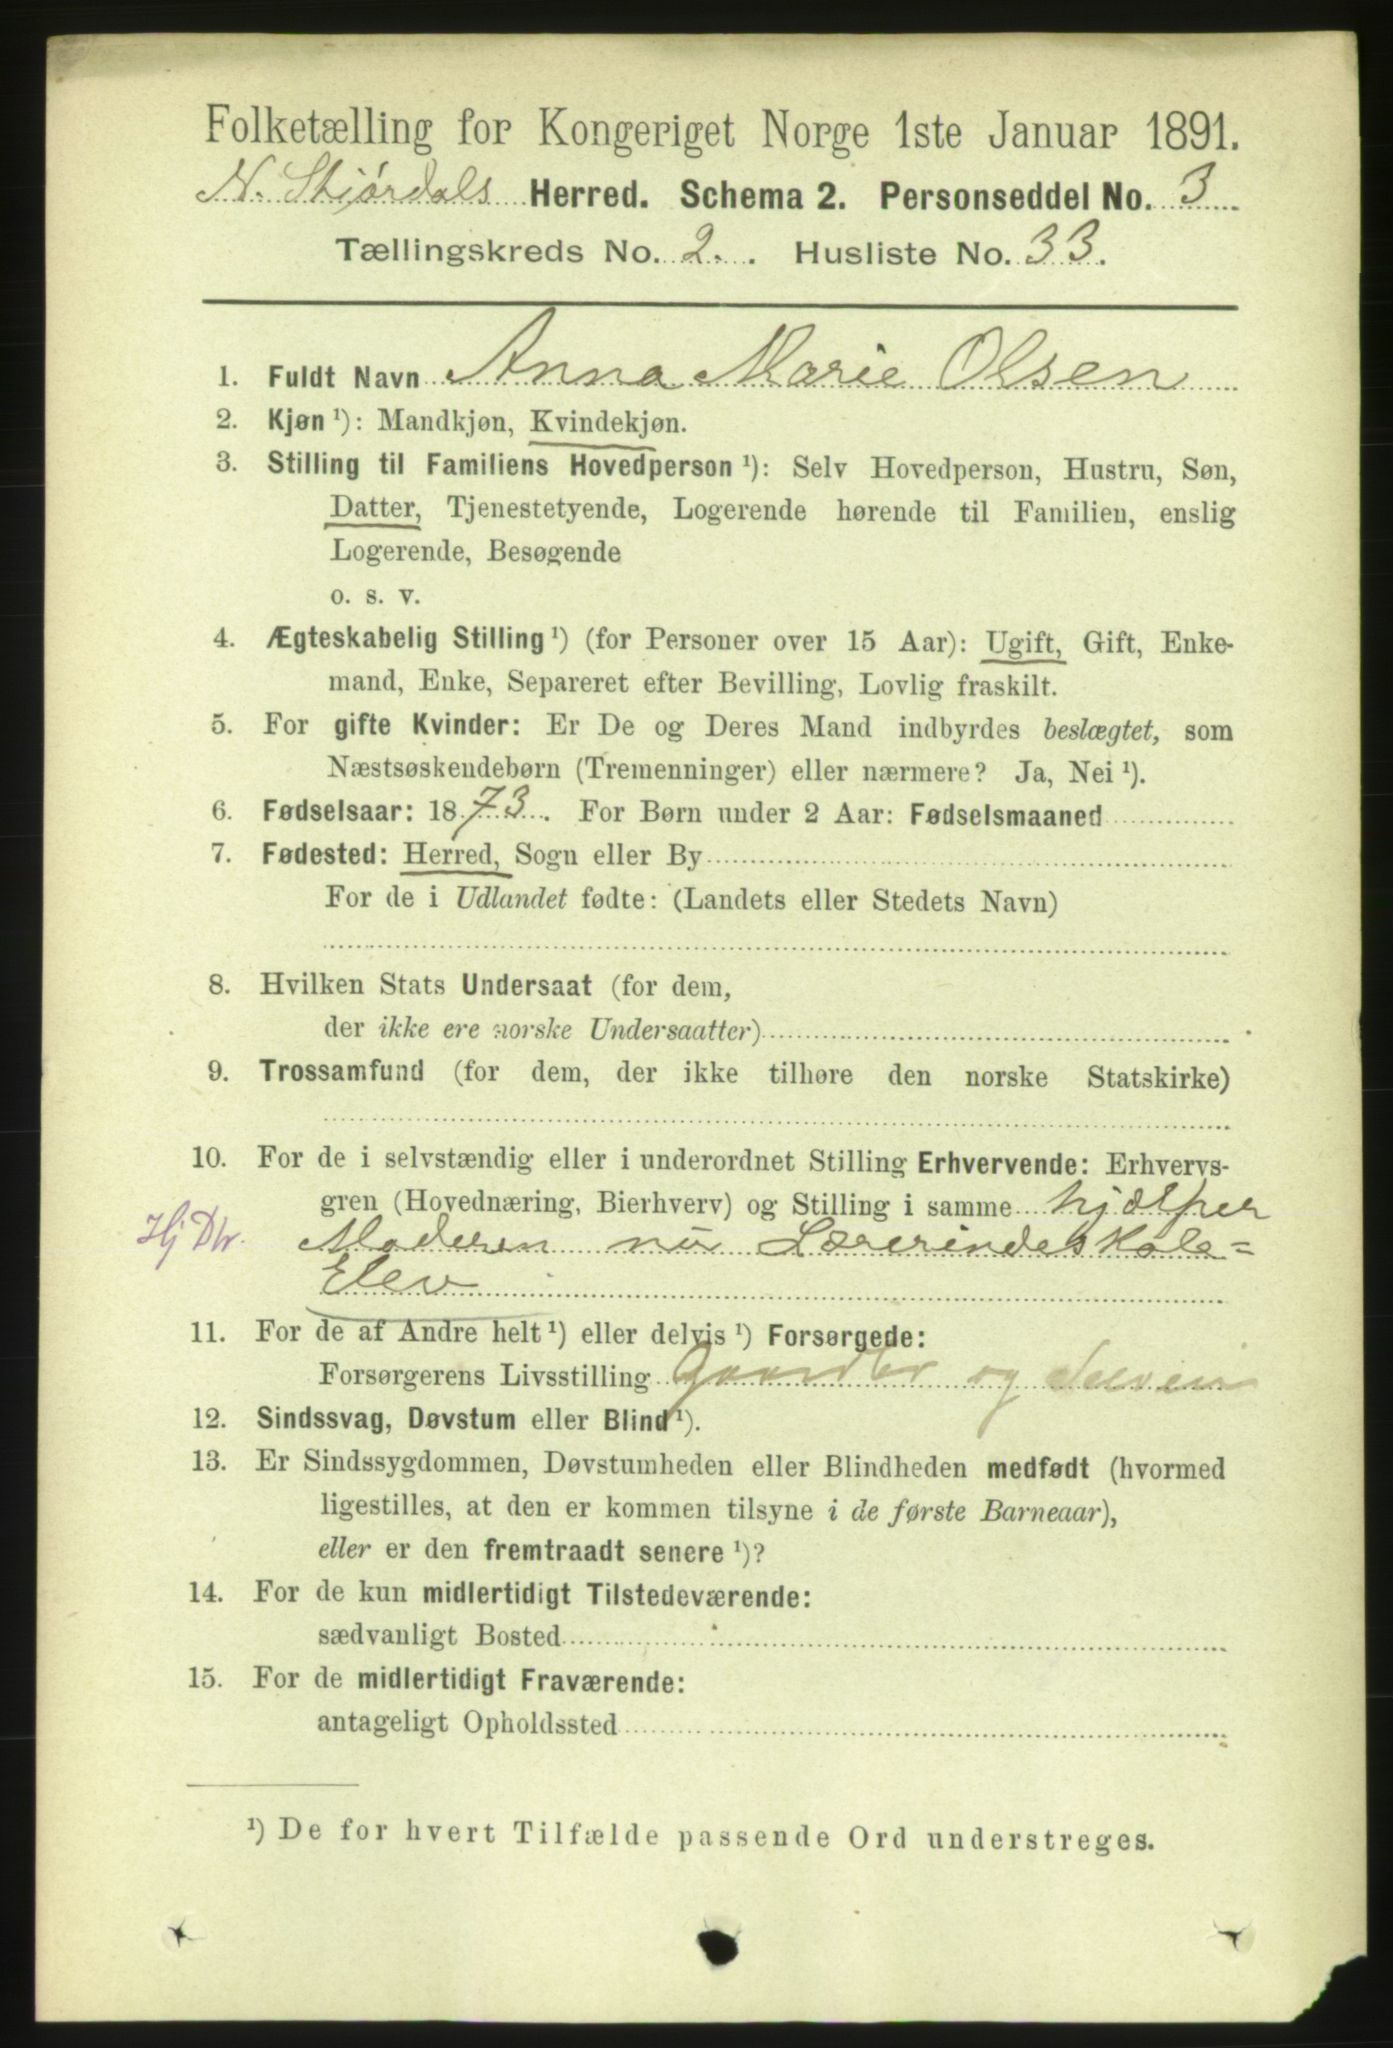 Folketælling for Kongeriget Norge 1ste Januar 1891.
N. Stjørdals Herred. Schema 2. Personseddel No. 3
Tællingskreds No. 2. Husliste No. 33.
1. Fuldt Navn Anna Marie Olsen
2. Kjøn ¹): Mandkjøn, Kvindekjøn.
3. Stilling til Familiens Hovedperson ¹): Selv Hovedperson, Hustru, Søn,
Datter, Tjenestetyende, Logerende hørende til Familien, enslig
Logerende, Besøgende
o. s. v.
4. Ægteskabelig Stilling ¹) (for Personer over 15 Aar): Ugift, Gift, Enke-
mand, Enke, Separeret efter Bevilling, Lovlig fraskilt.
5. For gifte Kvinder: Er De og Deres Mand indbyrdes beslægtet, som
Næstsøskendebørn (Tremenninger) eller nærmere? Ja, Nei ¹).
6. Fødselsaar: 1873. For Børn under 2 Aar: Fødselsmaaned
7. Fødested: Herred, Sogn eller By
For de i Udlandet fødte: (Landets eller Stedets Navn)
8. Hvilken Stats Undersaat (for dem,
der ikke ere norske Undersaatter)
9. Trossamfund (for dem, der ikke tilhøre den norske Statskirke)
10. For de i selvstændig eller i underordnet Stilling Erhvervende: Erhvervs-
gren (Hovednæring, Bierhverv) og Stilling i samme hjælper
Hj Dtr. Moderen nu Lærerindeskole=
Elev
11. For de af Andre helt ¹) eller delvis ¹) Forsørgede:
Forsørgerens Livsstilling og
12. Sindssvag, Døvstum eller Blind ¹).
13. Er Sindssygdommen, Døvstumheden eller Blindheden medfødt (hvormed
ligestilles, at den er kommen tilsyne i de første Barneaar),
eller er den fremtraadt senere ¹)?
14. For de kun midlertidigt Tilstedeværende:
sædvanligt Bosted
15. For de midlertidigt Fraværende:
antageligt Opholdssted
¹) De for hvert Tilfælde passende Ord understreges.